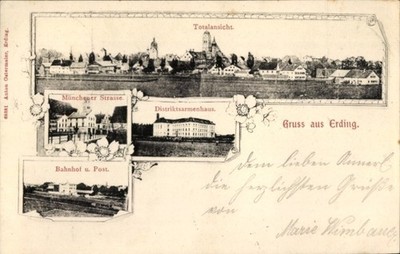 Totalansicht.
Münchener Strasse.
Distriktsarmenhaus.
Gruss aus Erding.
Bahnhof u. Post.
Anton Ostermaier, Erding.
Dem lieben Annerl
die herzlichsten Grüße
von
Marie